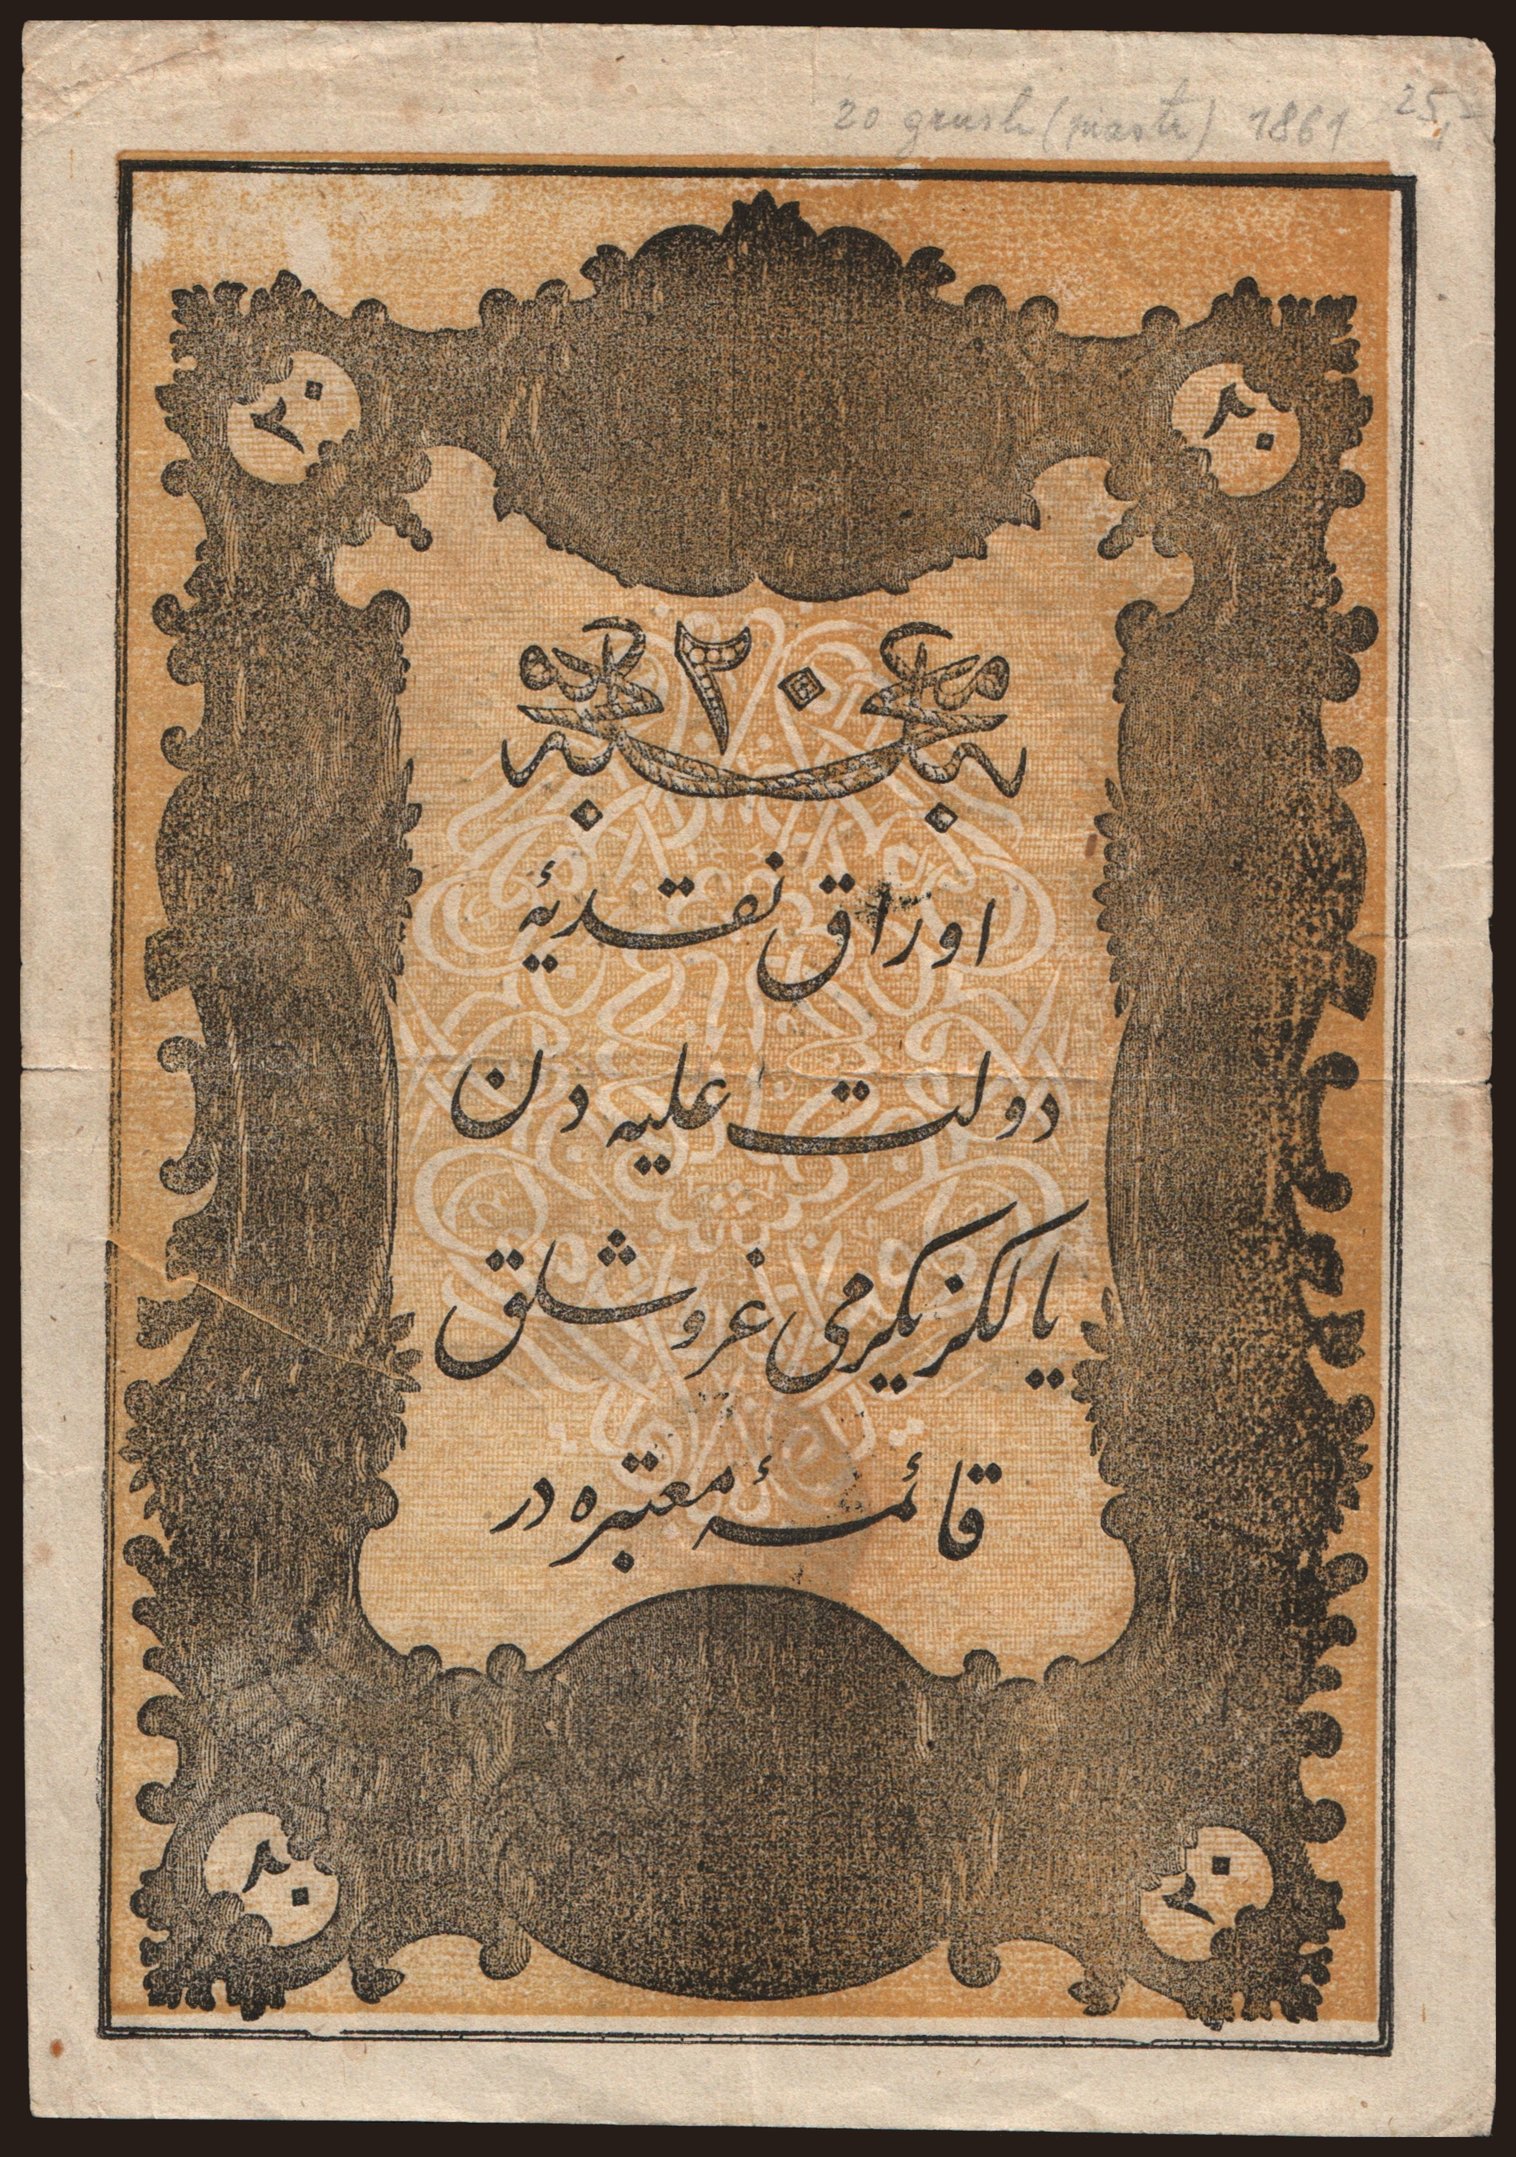 20 grush (piastr) 1861 25,-
٢٠
٢٠
٢٠
اوراق نقدیهٔ
دولت علیه دن
یالکز یکرمی غروشلق
قائمهٔ معتبره در
٢٠
٢٠